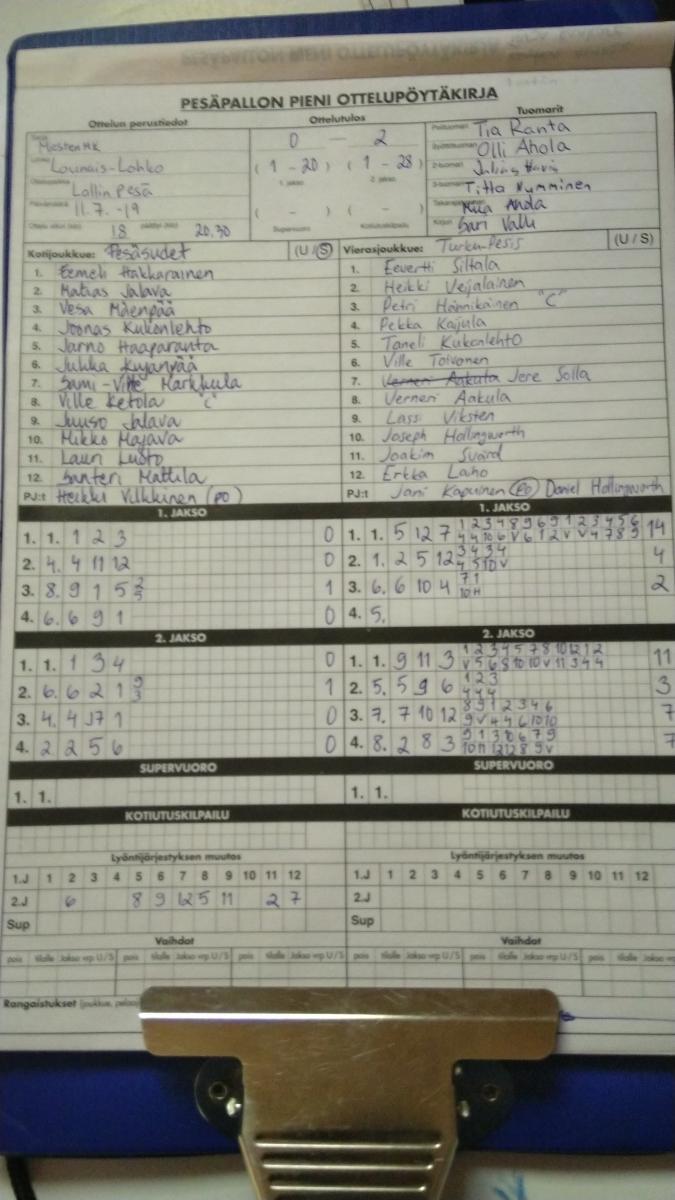 PESÄPALLON PIENI OTTELUPÖYTÄKIRJA
Ottelun perustiedot
Ottelutulos
Tuomarit
Miesten MK
Lounais-Lohko
Lallin Pesä
11.7. -19
18 20.30
0 — 2
( 1 - 20 ) ( 1 - 28 )
1. jakso 2. jakso
( - ) ( - )
Supervuoro Kotiutuskilpailu
Pelituomari Tia Ranta
Syöttötuomari Olli Ahola
2-tuomari
3-tuomari Titta Nymminen
Takarajatuomari Ahola
Kirjuri Sari Valli
Kotijoukkue: Pesäsudet (U / S)
1. Eemeli Hakkarainen
2. Matias Jalava
3. Vesa Mäenpää
4. Joonas Kukonlehto
5. Jarno Haaparanta
6. Jukka Kujanpää
7. Sami-Ville Markkula
8. Ville Ketola "C"
9. Juuso Jalava
10. Mikko Majava
11. Lauri Lusto
12. Santeri Mattila
PJ:t Heikki Vilkkinen (PO)
Vierasjoukkue: Turku-Pesis (U / S)
1. Eevertti Siltala
2. Heikki Veijalainen
3. Petri Hännikäinen "C"
4. Pekka Kaijula
5. Taneli Kukonlehto
6. Ville Toivonen
7. Verneri Aakula Jere Solla
8. Verneri Aakula
9. Lassi Viksten
10. Joseph Hollingworth
11. Joakim Svärd
12. Erkka Laho
PJ:t Jani Kapuinen (PO) Daniel Hollingworth
1. JAKSO
1. 1. 1 2 3 0
2. 4. 4 11 12 0
3. 8. 9 1 5 2 3 1
4. 6. 6 9 1 0
1. JAKSO
1 2 3 4 8 9 6 9 1 2 3 4 5 6
1. 1. 5 12 7 4 4 10 6 V 6 1 2 V V 4 7 8 9 14
3 4 3 4
2. 1. 2 5 12 4 5 10 V 4
7 1
3. 6. 6 10 4 10 H 2
4. 5.
2. JAKSO
1. 1. 1 3 4 0
2. 6. 6 2 1 9 3 1
3. 4. 4 17 1 0
4. 2 2 5 6 0
2. JAKSO
1 2 3 4 5 7 8 10 12 1 2
1. 1. 9 11 3 V 5 6 8 10 10 V 11 3 4 4 11
1 2 3
2. 5. 5 9 6 4 4 4 3
8 9 1 2 3 4 6
3. 7. 7 10 12 9 V 4 4 6 10 10 7
9 1 3 10 6 7 9
4. 8. 2 8 3 10 11 12 12 8 9 V 7
SUPERVUORO
1. 1.
SUPERVUORO
1. 1.
KOTIUTUSKILPAILU
KOTIUTUSKILPAILU
Lyöntijärjestyksen muutos
1.J 1 2 3 4 5 6 7 8 9 10 11 12
2.J 6 8 9 12 5 11 2 7
Sup
Lyöntijärjestyksen muutos
1.J 1 2 3 4 5 6 7 8 9 10 11 12
2.J
Sup
Vaihdot
pois tilalle Jakso vrp U/S pois tilalle Jakso vrp U/S pois tilalle Jakso vrp U/S
Vaihdot
pois tilalle Jakso vrp U/S pois tilalle Jakso vrp U/S pois tilalle Jakso vrp
Rangaistukset (joukkue,